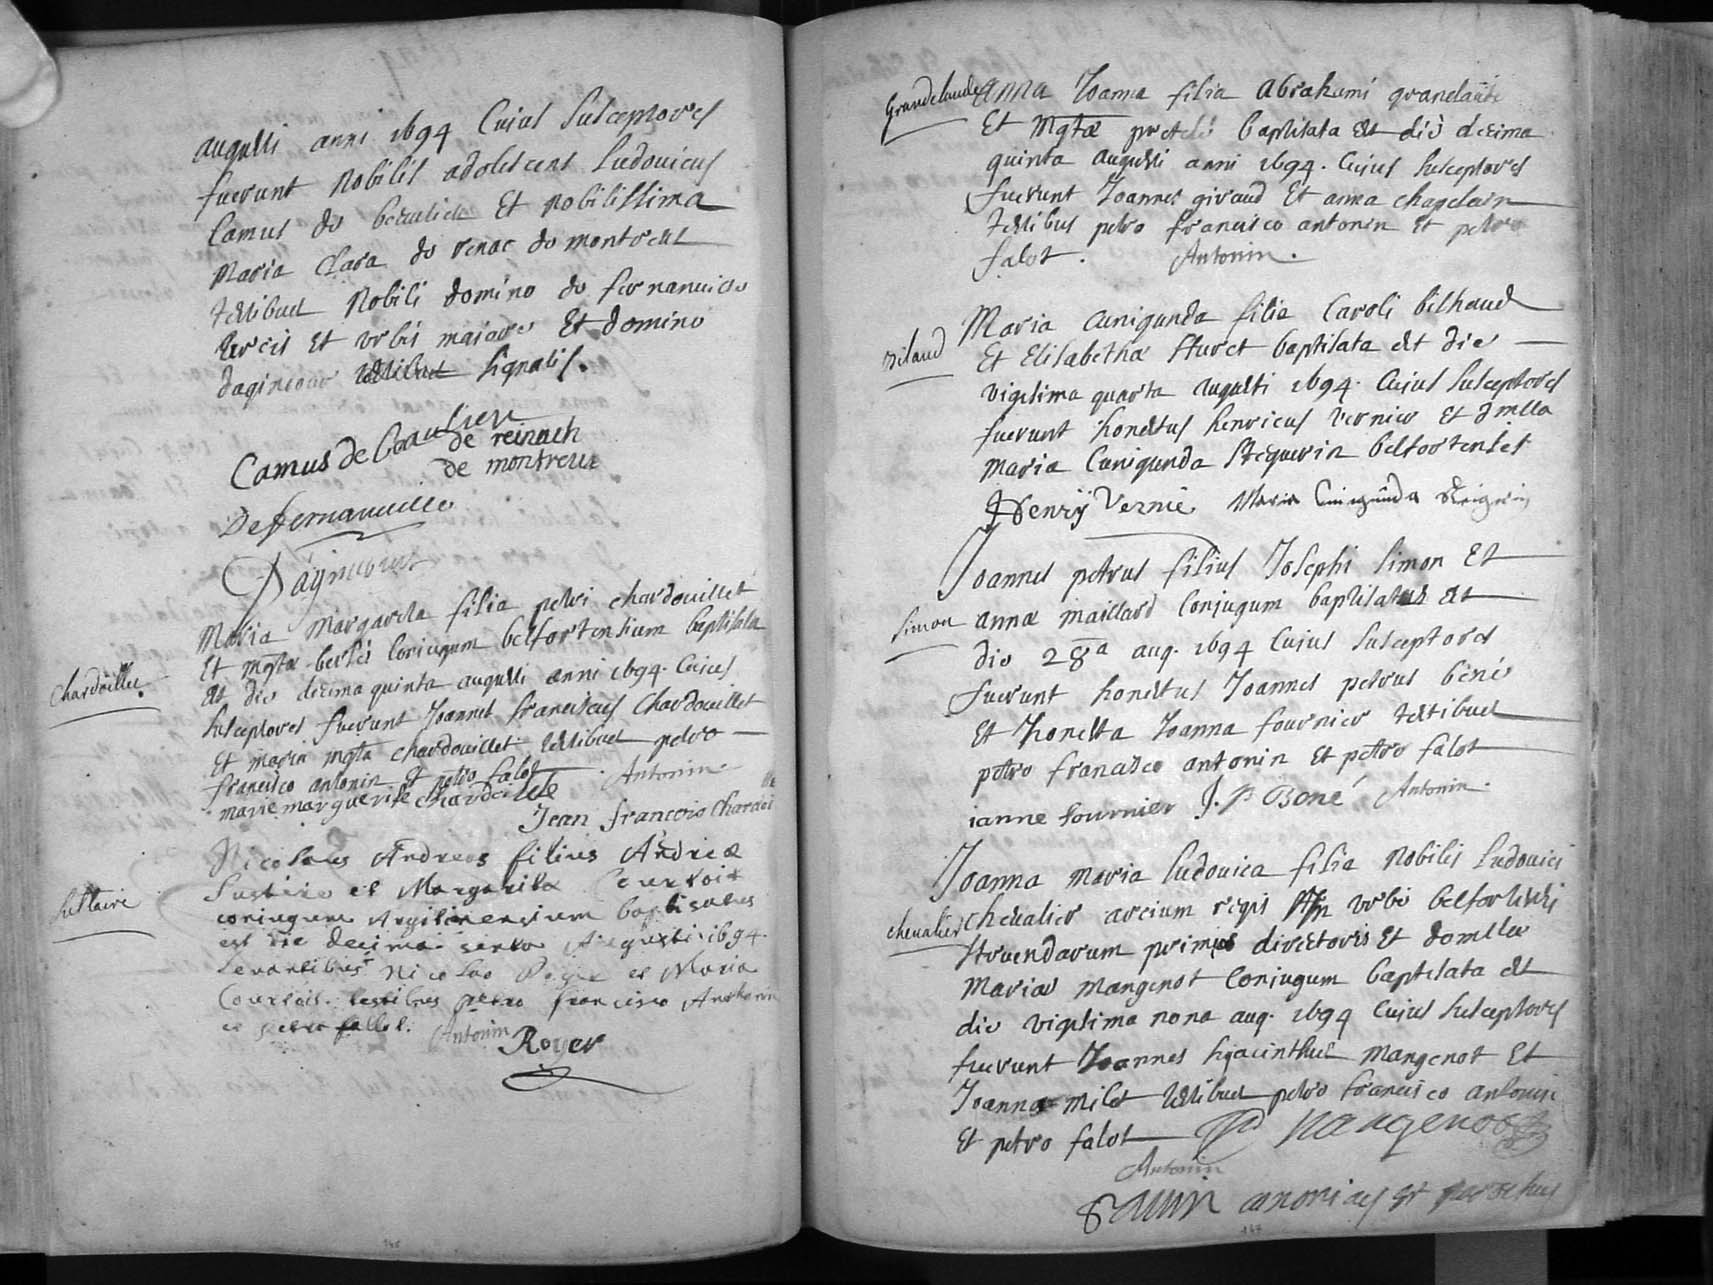 augusti anni 1694 Cujus Susceptores
fuerunt Nobilis adolescens Ludovicus
Camus de beaulieu Et Nobilissima
Maria Clara de renac de montreux
testibus Nobili domino de fernanville
arcis Et urbis majore Et domino
dagincour testibus signatis.
Camus de beaulieu
de reinach
de montreux
De fernanuille
Dagincour
Chardoillet
Maria Margareta filia petri chardouillet
Et mgtæ berlei Conjugum belfortensium baptisata
est die decima quinta augusti anni 1694. Cujus
susceptores fuerunt Joannes franciscus Chardouillet
Et maria mgta chardouillet testibus petro
francisco antonin et petro falot. Antonin.
marie marguerite chardoillet
Jean francois Chardoillet
Sustaire
Nicolaus Andreas filius Andreæ
Sustaire et Margarita Courtois
conjugum Argilinensium baptisatus
est die decima sexta Augusti 1694.
Levantibus Nicolao Royer et Maria
Courtois. testibus petro francisco Anthonin
et petro fallot. Antonin
Royer
Grandclaude
Anna Joanna filia Abrahami grandclaude
Et Mgtæ baptisata est die decima
quinta augusti anni 1694. Cujus susceptores
fuerunt Joannes giraud Et anna chapelain
testibus petro francisco antonin Et petro
falot. Antonin.
Bilaud
Maria Cunigunda filia Caroli bilhaud
Et Elisabethæ Sturet baptisata est die
vigesima quarta augusti 1694. Cujus susceptores
fuerunt honestus henricus vernier Et dmlla
Maria Cunigunda Steguerin belfortenses
Henrÿ Vernie Maria Cunigunda
Simon
Joannes petrus filius Josephi simon Et
annæ maillard Conjugum baptisatus est
die 28a aug. 1694 Cujus susceptores
fuerunt honestus Joannes petrus béné
Et honesta Joanna fournier testibus
petro francisco antonin Et petro falot
ianne fournier J. P Bené Antonin.
chevalier
Joanna Maria Ludovica filia Nobilis Ludovici
Chevalier arcium regis in urbe belfortensi
struendarum primi directoris Et domllæ
Mariæ mangenot Conjugum baptisata est
die vigesima nona aug. 1694 Cujus susceptores
fuerunt Joannes hyacinthus mangenot Et
Joanna milet testibus petro francisco antonin
Et petro falot Mangenot
Antonin
canonicus et parochus